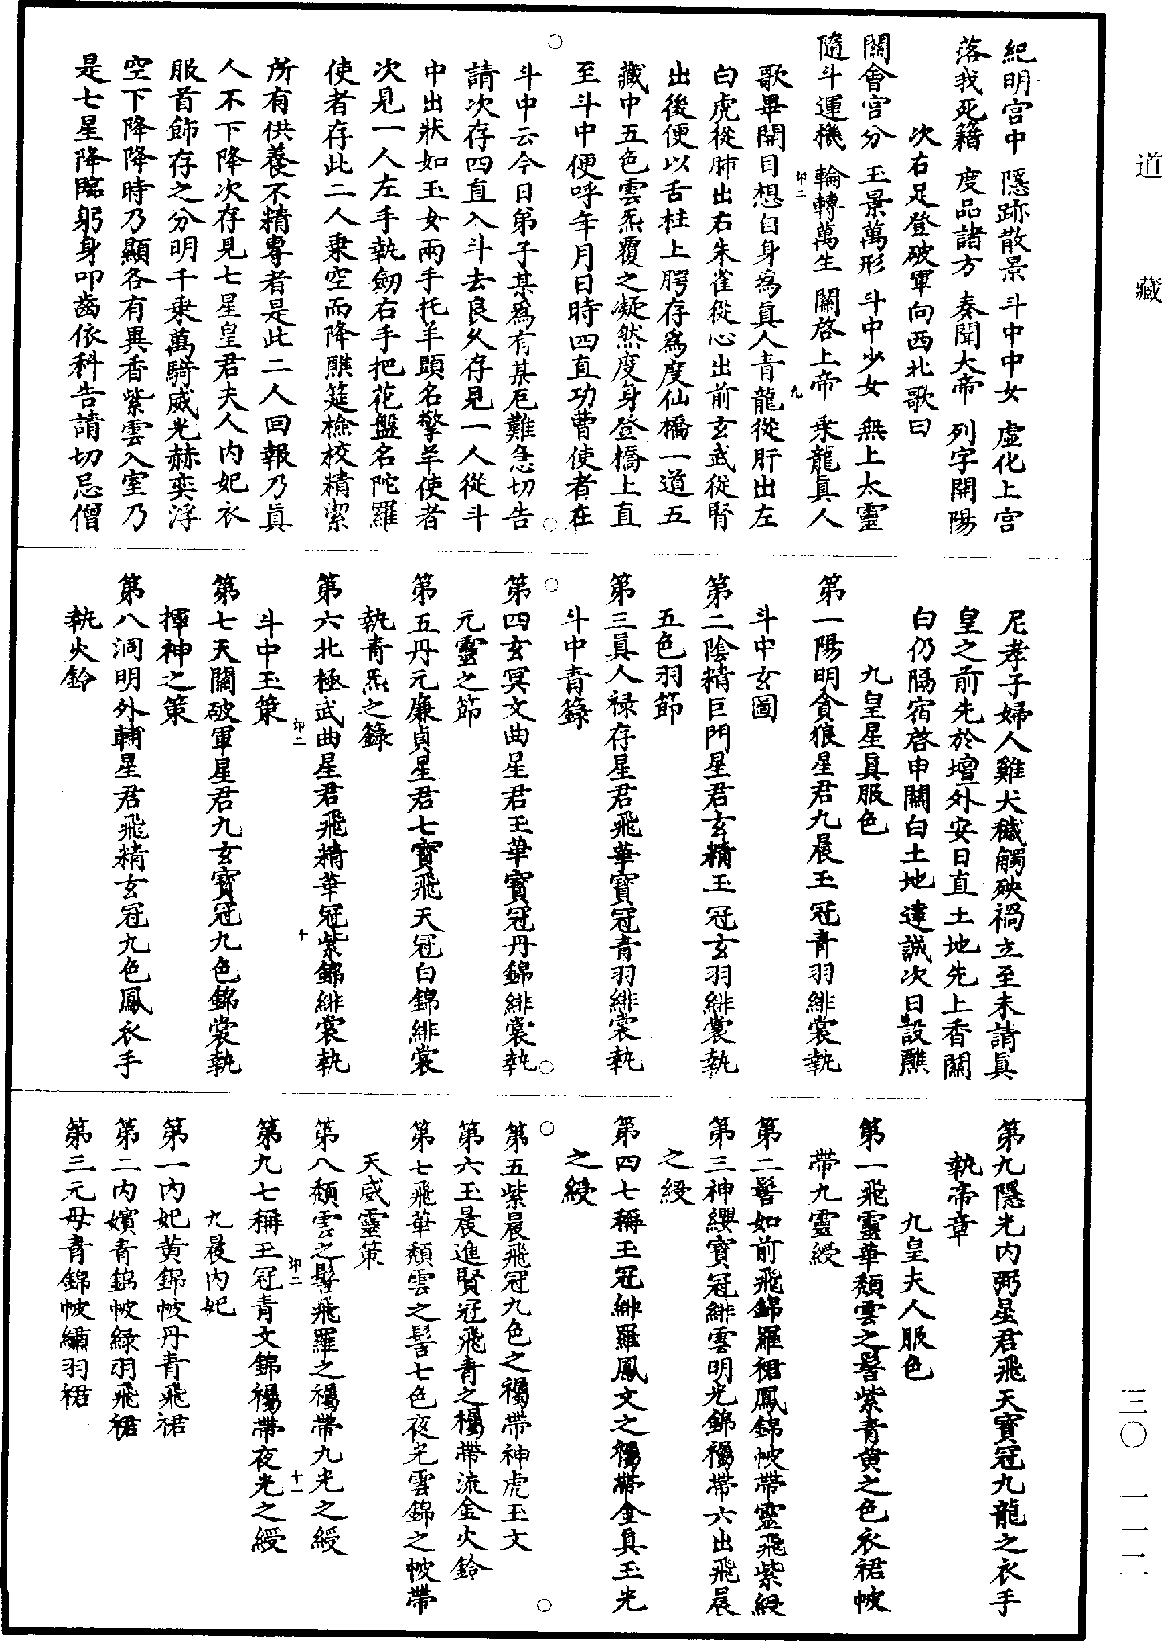 道藏
紀明宮中　隱跡散景　斗中中女　虛化上宮
落我死籍　度品諸方　奏聞大帝　列字開陽
次右足登破軍向西北歌曰
關會宮分　玉景萬形　斗中少女　無上太靈
隨斗運機　輪轉萬生　關啓上帝　乘龍真人
歌畢開目想自身為真人青龍從肝出左
白虎從肺出右朱雀從心出前玄武從腎
出後便以舌柱上腭存為度仙橋一道五
藏中五色雲炁覆之凝然度身登橋上直
至斗中便呼年月日時四直功曹使者在
斗中云今日弟子某為有某厄難急切告
請次存四直入斗去良久存見一人從斗
中出狀如玉女兩手托羊頭名擎羊使者
次見一人左手執劒右手把花盤名陀羅
使者存此二人乘空而降醮筵檢校精潔
所有供養不精專者是此二人回報乃真
人不下降次存見七星皇君夫人內妃衣
服首飾存之分明千乘萬騎威光赫奕浮
空下降降時乃顯各有異香紫雲入室乃
是七星降臨躬身叩齒依科告請切忌僧
尼孝子婦人雞犬穢觸殃禍立至未請真
皇之前先於壇外安日直土地先上香關
白仍隔宿啓申關白土地達誠次日設醮
九皇星真服色
第一陽明貪狼星君九晨玉冠青羽緋裳執
斗中玄圖
第二陰精巨門星君玄精玉冠玄羽緋裳執
五色羽節
第三真人祿存星君飛華寶冠青羽緋裳執
斗中青籙
第四玄冥文曲星君玉華寶冠丹錦緋裳執
元靈之節
第五丹元廉貞星君七寶飛天冠白錦緋裳
執青炁之籙
第六北極武曲星君飛精華冠紫錦緋裳執
斗中玉策
第七天關破軍星君九玄寶冠九色錦裳執
揮神之策
第八洞明外輔星君飛精玄冠九色鳳衣手
執火鈴
第九隱光內弼星君飛天寶冠九龍之衣手
執帝章
九皇夫人服色
第一飛靈華頹雲之髻紫青黃之色衣裙帔
帶九靈綬
第二髻如前飛錦羅裙鳳錦帔帶靈飛紫綬
第三神纓寶冠緋雲明光錦䙝帶六出飛晨
之綬
第四七稱玉冠緋羅鳳文之䙝帶金真玉光
之綬
第五紫晨飛冠九色之䙝帶神虎玉文
第六玉晨進賢冠飛青之䙝帶流金火鈴
第七飛華頹雲之髻七色夜光雲錦之帔帶
天威靈策
第八頹雲之髻飛羅之䙝帶九光之綬
第九七稱玉冠青文錦䙝帶夜光之綬
九晨內妃
第一內妃黃錦帔丹青飛裙
第二內嬪青錦帔綠羽飛裙
第三元母青錦帔繡羽裙
三〇　一一二